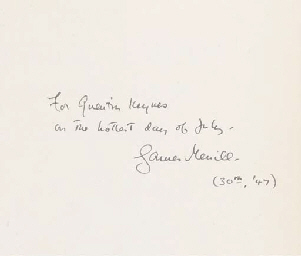 For Quentin Keynes
on the hottest day of July.
James Merrill.
(30th, '47)